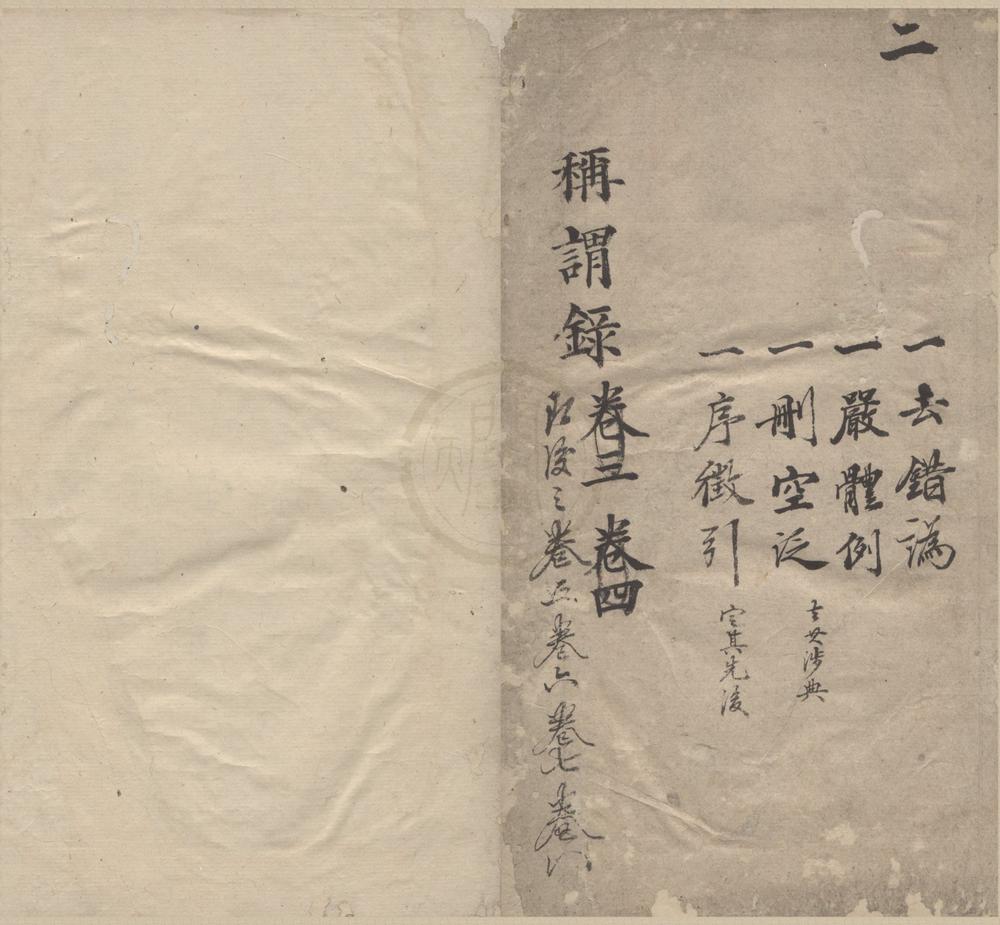 二
一去錯譌
一嚴體例
一刪空泛
一序徵引 定其先後
稱謂錄 卷三 卷四
卷五 卷六 卷七 卷八